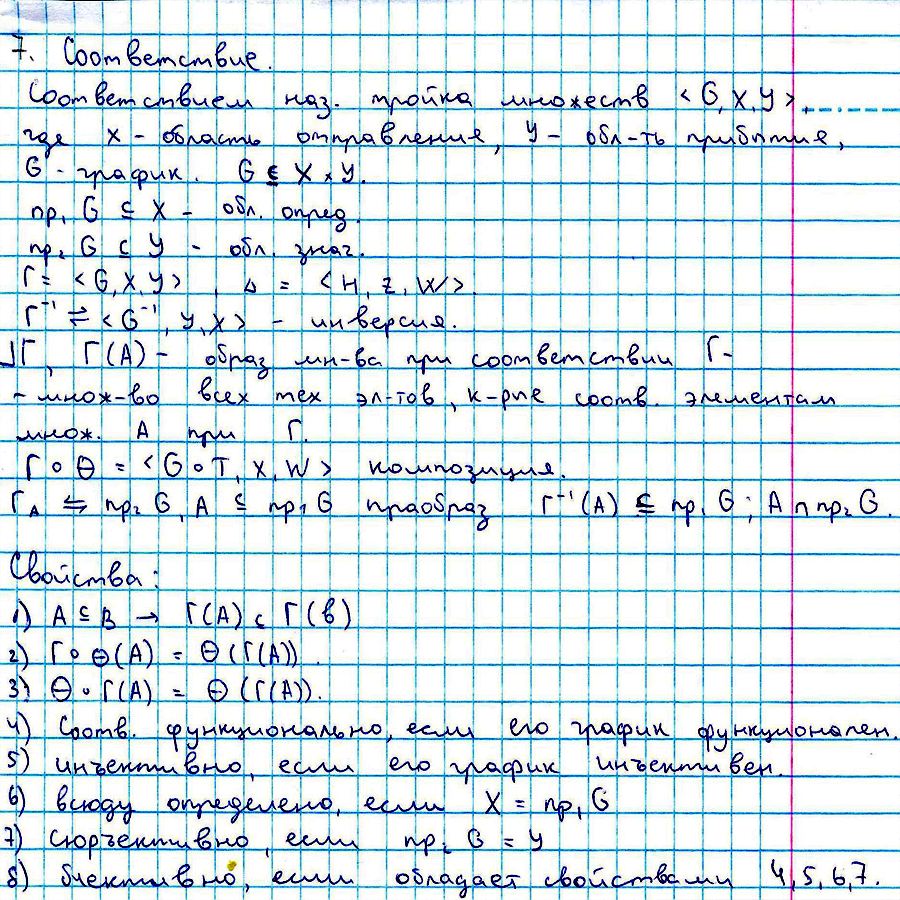 7. Соответствие.
Соответствием наз. тройка множеств <G, X, Y>,
где X - область отправления, Y - обл-ть прибытия,
G - график. G ⊆ X × Y.
пр₁ G ⊆ X - обл. опред.
пр₂ G ⊂ Y - обл. знач.
Γ = <G, X, Y>, Δ = <H, Z, W>.
Γ⁻¹ ⇌ <G⁻¹, Y, X> - инверсия.
⅃Γ, Γ(A) - образ мн-ва при соответствии Γ -
- множ-во всех тех эл-тов, к-рые соотв. элементам
множ. A при Γ.
Γ ∘ Θ = <G ∘ T, X, W> композиция.
Γ_A ⇋ пр₂ G, A ⊆ пр₁ G праобраз Γ⁻¹(A) ⊆ пр₁ G; A ∩ пр₂ G.
Свойства:
1) A ⊆ B → Γ(A) ⊂ Γ(B)
2) Γ ∘ Θ(A) = Θ(Γ(A)).
3) Θ ∘ Γ(A) = Θ(Γ(A)).
4) Соотв. функционально, если его график функционален.
5) инъективно, если его график инъективен.
6) всюду определено, если X = пр₁ G
7) сюръективно, если пр₂ G = Y
8) биективно, если обладает свойствами 4, 5, 6, 7.